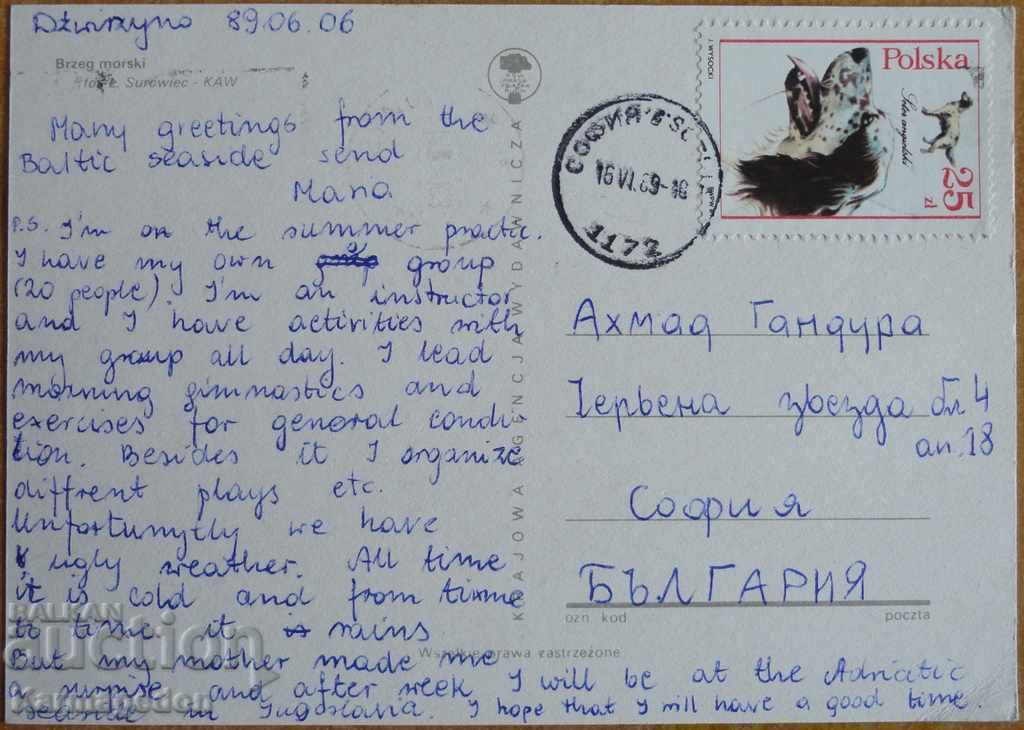 Dźwirzyno 89.06.06
Brzeg morski
Fot. Z. Surowiec - KAW
Many greetings from the
Baltic seaside send
Maria
P.S. I'm on the summer practic.
I have my own group
(20 people). I'm an instructor
and I have activities with
my group all day. I lead
morning gimnastics and
exercises for general condi
tion. Besides it I organize
diffrent plays etc.
Unfortunytly we have
ugly weather. All time
it is cold and from time
to time it rains
But my mother made me
a surprise and after week I will be at the Adriatic
seaside in Jugoslavia. I hope that I will have a good time.
KRAJOWA AGENCJA WYDAWNICZA
Wszelkie prawa zastrzeżone
J. WYSOCKI
Polska
Seter angielski
25 zł
PWPW
СОФИЯ
16.VI.89-18
1172
Ахмад Гандура
Червена звезда бл 4
ап. 18
София
БЪЛГАРИЯ
ozn. kod poczta
BALKAN
auction
Karmageddon